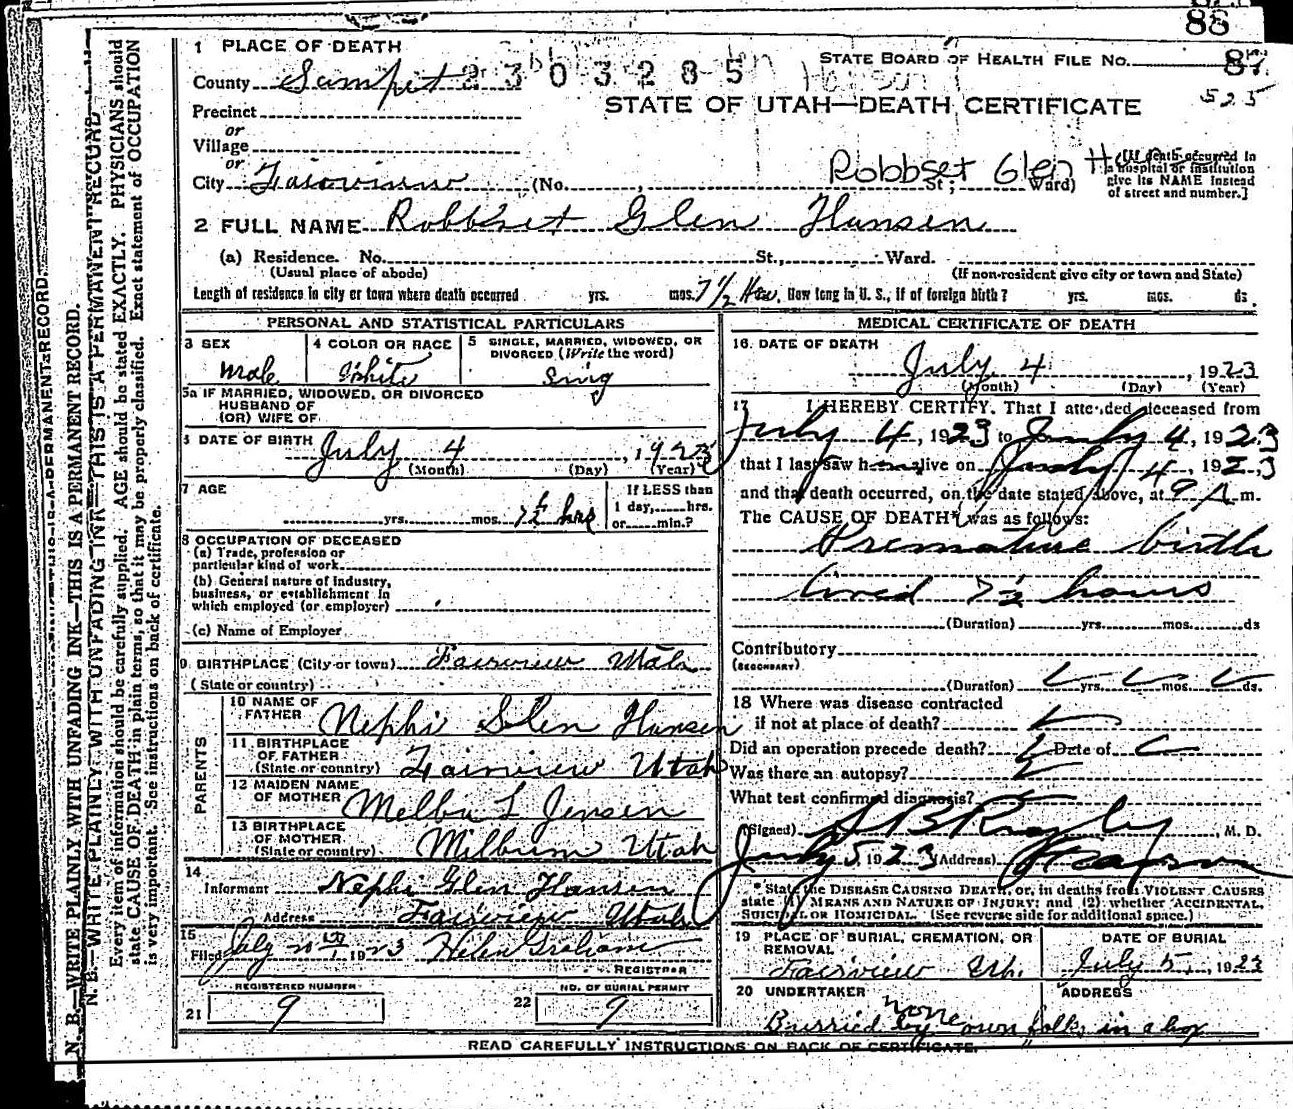 88
1 PLACE OF DEATH
STATE BOARD OF HEALTH FILE No. 87
County Sanpet 2303285
525
STATE OF UTAH—DEATH CERTIFICATE
Precinct
or
Village
or
Robbset Glen
City Fairview (No. , St; Ward)
[If death occurred in a hospital or institution give its NAME instead of street and number.]
2 FULL NAME Robbset Glen Hansen
(a) Residence. No. St., Ward.
(Usual place of abode) (If non-resident give city or town and State)
Length of residence in city or town where death occurred yrs. mos. 7½ How long in U. S., if of foreign birth? yrs. mos. ds.
PERSONAL AND STATISTICAL PARTICULARS
3 SEX
Male
4 COLOR OR RACE
White
5 SINGLE, MARRIED, WIDOWED, OR DIVORCED (Write the word)
Sing
5a IF MARRIED, WIDOWED, OR DIVORCED
HUSBAND OF
(OR) WIFE OF
6 DATE OF BIRTH July 4, 1923
(Month) (Day) (Year)
7 AGE
yrs. mos. 7½ hrs
If LESS than
1 day, hrs.
or min.?
8 OCCUPATION OF DECEASED
(a) Trade, profession or
particular kind of work
(b) General nature of industry,
business, or establishment in
which employed (or employer)
(c) Name of Employer
9 BIRTHPLACE (City or town) Fairview Utah
(State or country)
PARENTS
10 NAME OF FATHER Nephi Glen Hansen
11 BIRTHPLACE OF FATHER (State or country) Fairview Utah
12 MAIDEN NAME OF MOTHER Melba L Jensen
13 BIRTHPLACE OF MOTHER (State or country) Milburn Utah
14
Informant Nephi Glen Hansen
Address Fairview Utah
15
Filed July 1923 Helen Graham
REGISTRAR
REGISTERED NUMBER
21 9
NO. OF BURIAL PERMIT
22 9
MEDICAL CERTIFICATE OF DEATH
16 DATE OF DEATH
July 4, 1923
(Month) (Day) (Year)
17 I HEREBY CERTIFY, That I attended deceased from
July 4, 1923 to July 4, 1923
that I last saw h alive on July 4, 1923
and that death occurred, on the date stated above, at 9 A m.
The CAUSE OF DEATH* was as follows:
Premature birth
lived 7½ hours
(Duration) yrs. mos. ds
Contributory
(SECONDARY)
(Duration) yrs. mos. ds.
18 Where was disease contracted
if not at place of death?
Did an operation precede death? Date of
Was there an autopsy?
What test confirmed diagnosis?
(Signed) , M. D.
July 5 1923 (Address)
*State the DISEASE CAUSING DEATH, or, in deaths from VIOLENT CAUSES
state (1) MEANS AND NATURE OF INJURY; and (2) whether ACCIDENTAL,
SUICIDAL OR HOMICIDAL. (See reverse side for additional space.)
19 PLACE OF BURIAL, CREMATION, OR REMOVAL
Fairview Uth.
DATE OF BURIAL
July 5, 1923
20 UNDERTAKER ADDRESS
none
Burried by own folks in a box
READ CAREFULLY INSTRUCTIONS ON BACK OF CERTIFICATE.
N. B.—WRITE PLAINLY WITH UNFADING INK—THIS IS A PERMANENT RECORD.
N. B.—WRITE PLAINLY, WITH UNFADING INK—THIS IS A PERMANENT RECORD
Every item of information should be carefully supplied. AGE should be stated EXACTLY. PHYSICIANS should
state CAUSE OF DEATH in plain terms, so that it may be properly classified. Exact statement of OCCUPATION
is very important. See instructions on back of certificate.